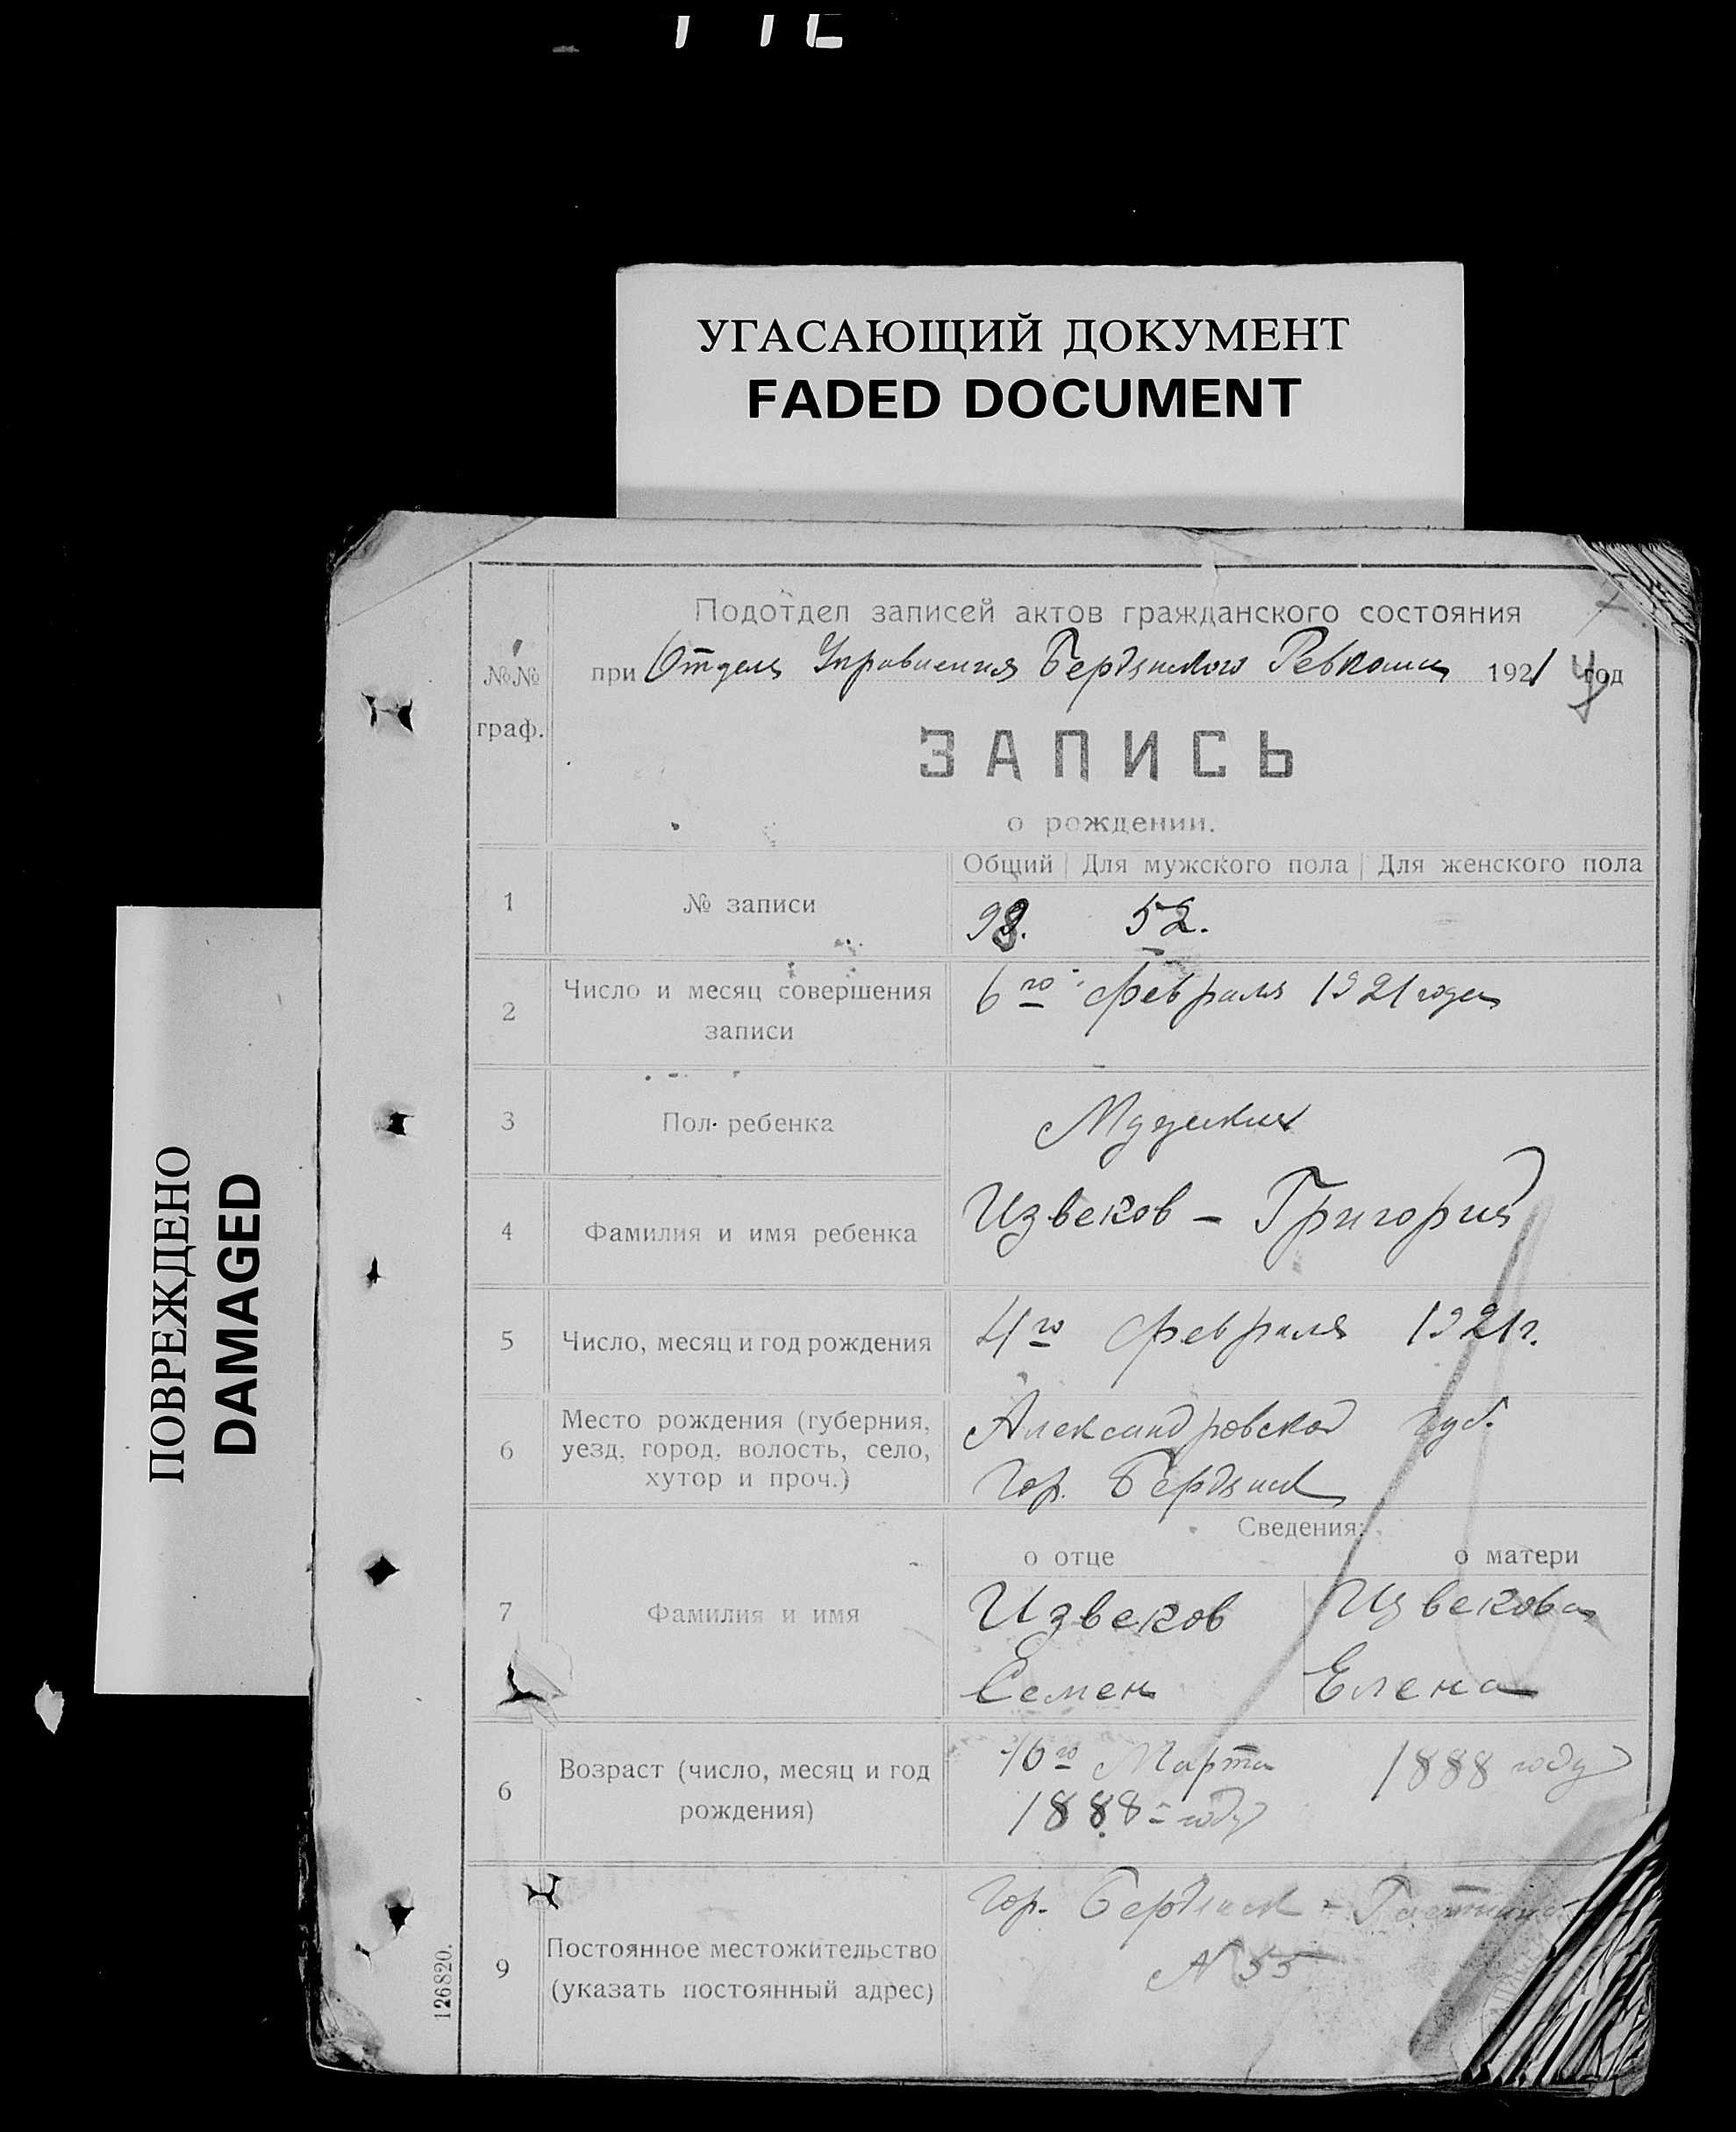 УГАСАЮЩИЙ ДОКУМЕНТ
FADED DOCUMENT
ПОВРЕЖДЕНО
DAMAGED
Подотдел записей актов гражданского состояния
№№ граф.
при Отделе Управления Бердянского Ревкома 1921 год
ЗАПИСЬ
о рождении.
Общий Для мужского пола Для женского пола
1 № записи 52.
2 Число и месяц совершения записи 6го февраля 1921 года
3 Пол ребенка Мужский
4 Фамилия и имя ребенка Извеков - Григорий
5 Число, месяц и год рождения 4го февраля 1921 г.
6 Место рождения (губерния, Александровской губ.
уезд, город, волость, село,
хутор и проч.) Гор. Бердянск
Сведения:
о отце о матери
7 Фамилия и имя Извеков Извекова
Семен Елена
6 Возраст (число, месяц и год 10го Марта 1888 году
рождения) 1888 году
9 Гор. Бердянск -
Постоянное местожительство N 55
(указать постоянный адрес)
126820.